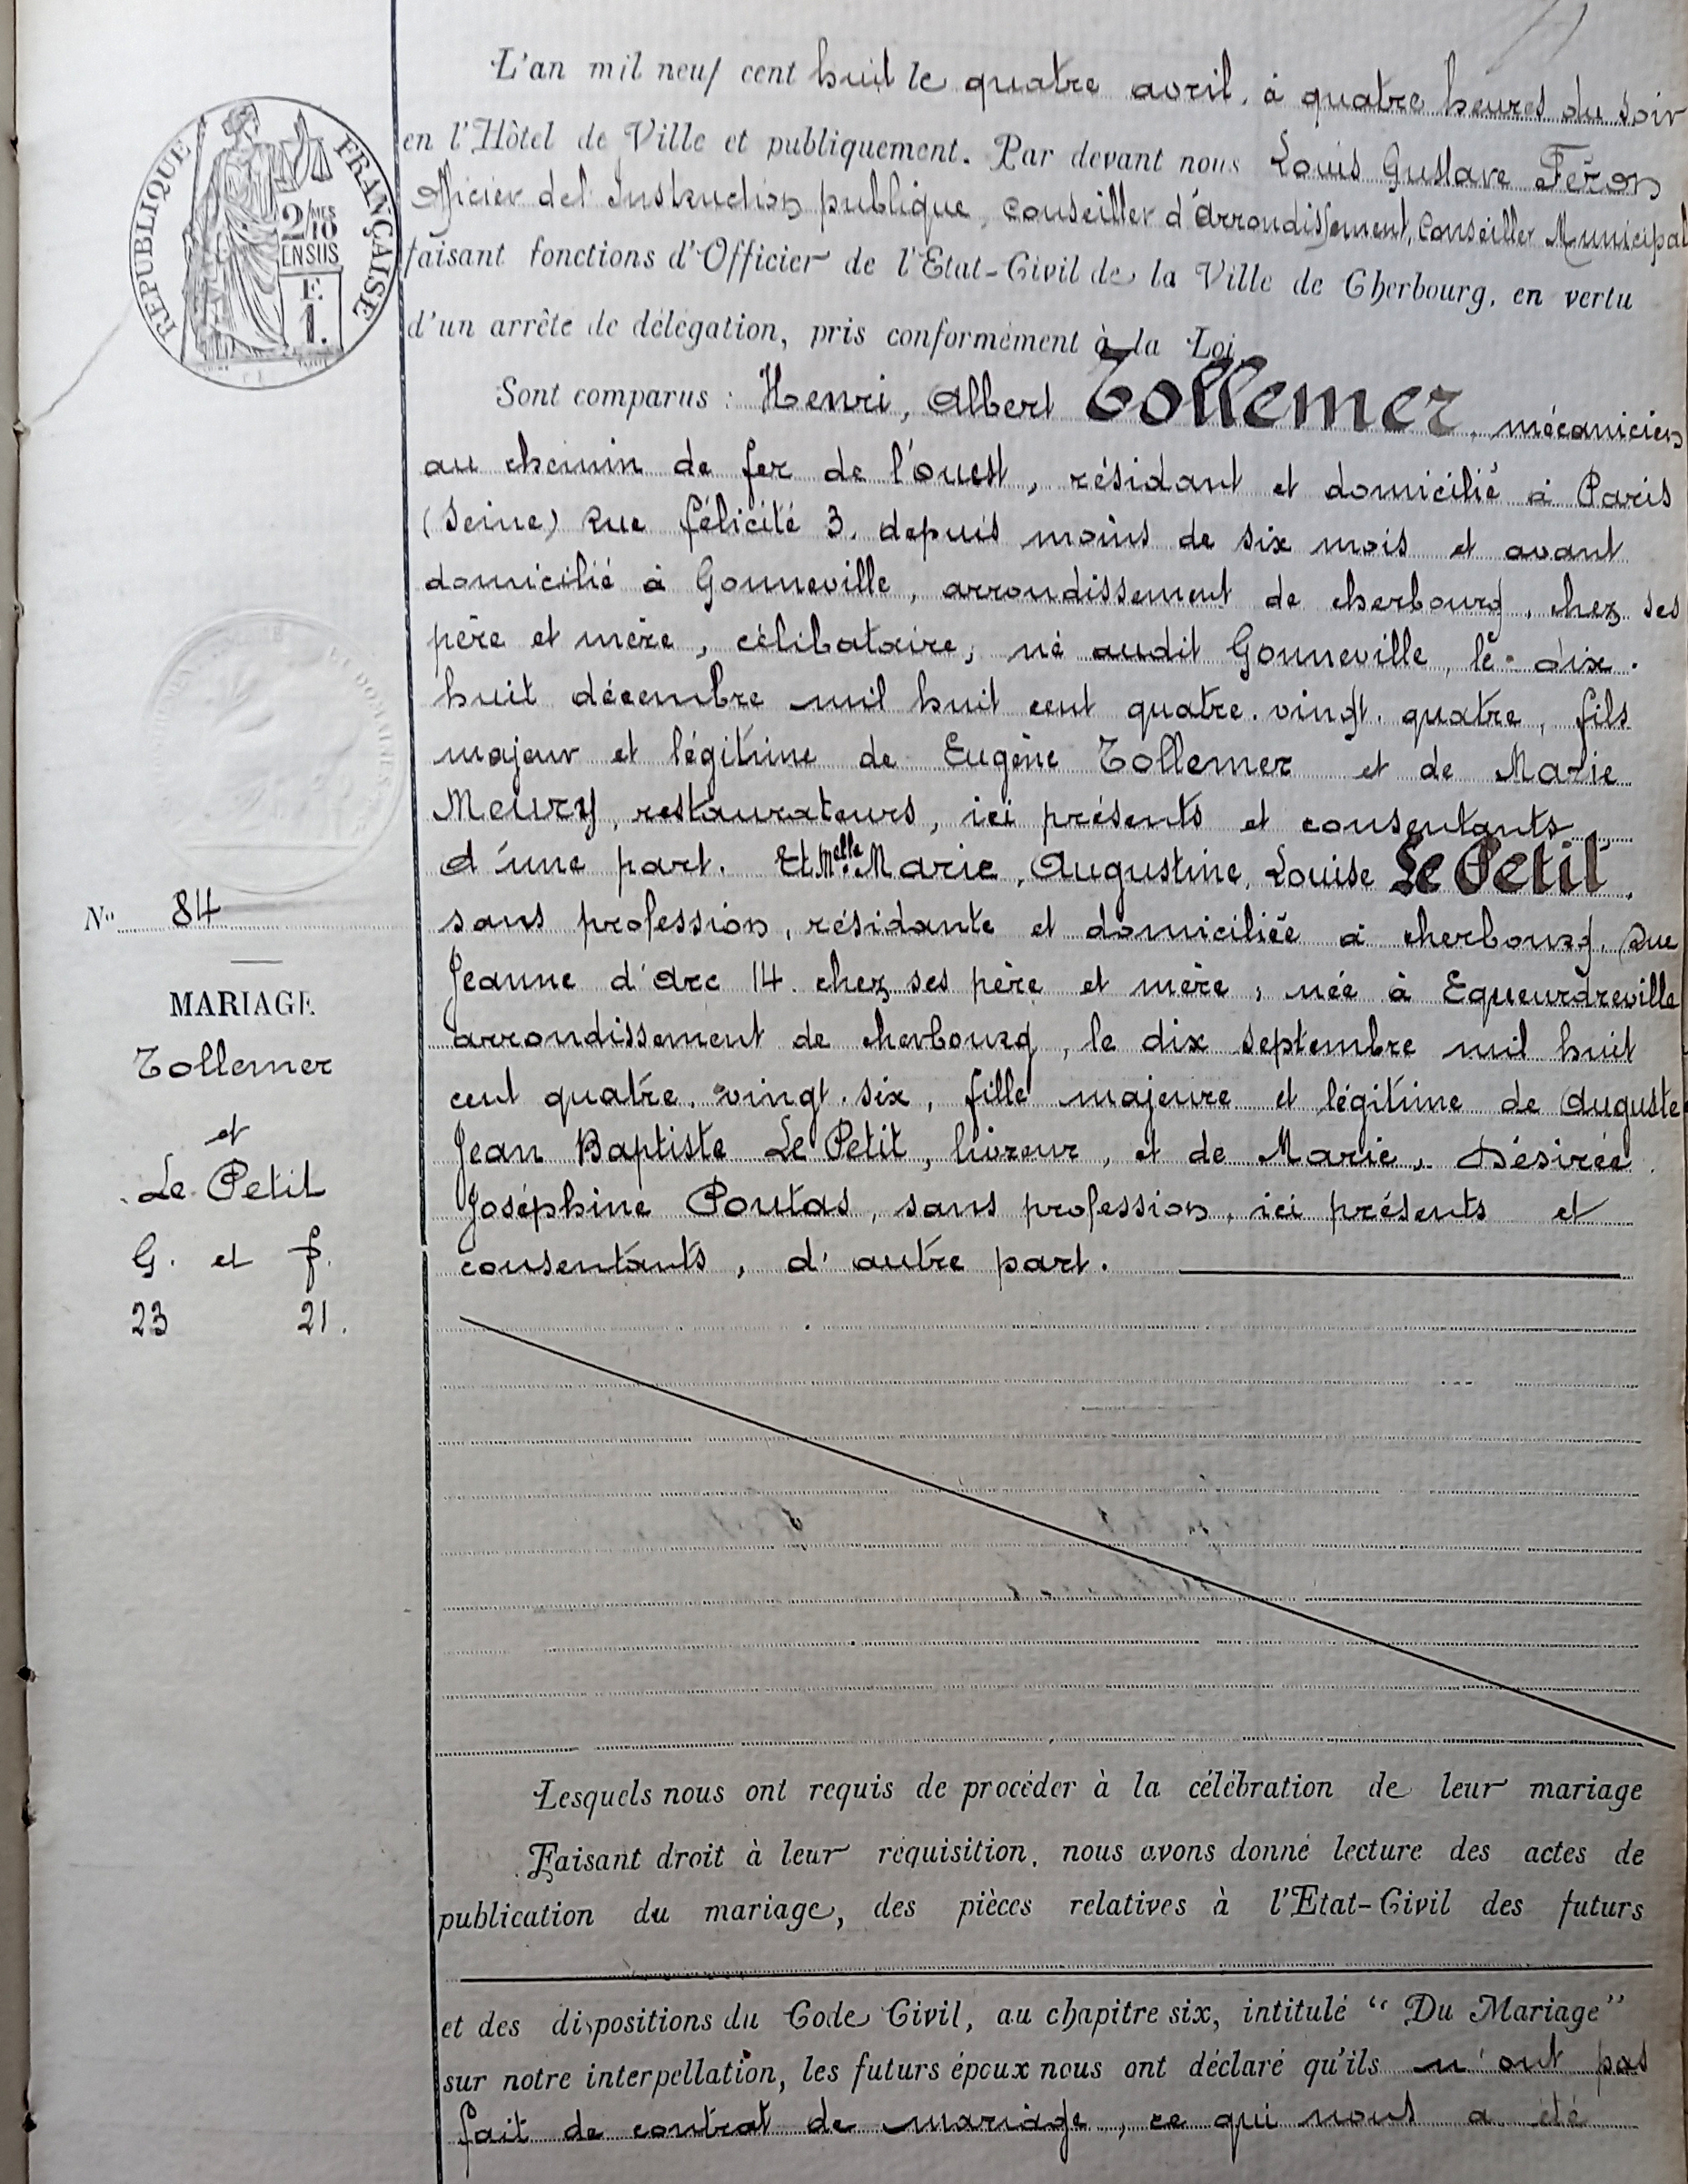 L'an mil neuf cent huit le quatre avril, à quatre heures du soir
en l'Hôtel de Ville et publiquement. Par devant nous Louis Gustave Féron
Officier de l'Instruction publique, Conseiller d'Arrondissement, Conseiller Municipal
faisant fonctions d'Officier de l'Etat-Civil de la Ville de Cherbourg, en vertu
d'un arrête de délégation, pris conformément à la Loi.
Sont comparus : Henri, Albert Tollemer, mécanicien
au chemin de fer de l'ouest, résidant et domicilié à Paris
(Seine) Rue Félicité 3. depuis moins de six mois et avant
domicilié à Gonneville, arrondissement de cherbourg, chez ses
père et mère, célibataire, né audit Gonneville, le dix.
huit décembre mil huit cent quatre. vingt. quatre, fils
majeur et légitime de Eugène Tollemer et de Marie
Meury, restaurateurs, ici présents et consentants
d'une part. Et Melle Marie, Augustine, Louise Le Petit,
sans profession, résidante et domiciliée à cherbourg. Rue
Jeanne d'Arc 14. chez ses père et mère, née à Equeurdreville
arrondissement de cherbourg, le dix septembre mil huit
cent quatre. vingt. six, fille majeure et légitime de Auguste
Jean Baptiste Le Petit, livreur, et de Marie, Désirée
Joséphine Poutas, sans profession, ici présents et
consentants, d'autre part.
Lesquels nous ont requis de procéder à la célébration de leur mariage
Faisant droit à leur réquisition, nous avons donné lecture des actes de
publication du mariage, des pièces relatives à l'Etat-Civil des futurs
et des dispositions du Code Civil, au chapitre six, intitulé “Du Mariage”
sur notre interpellation, les futurs époux nous ont déclaré qu'ils n'ont pas
fait de contrat de mariage, ce qui nous a été
REPUBLIQUE FRANÇAISE
2/10 MES
EN SUS
F.
1.
No 84
MARIAGE
Tollemer
et
Le Petit
G. et f.
23 21.